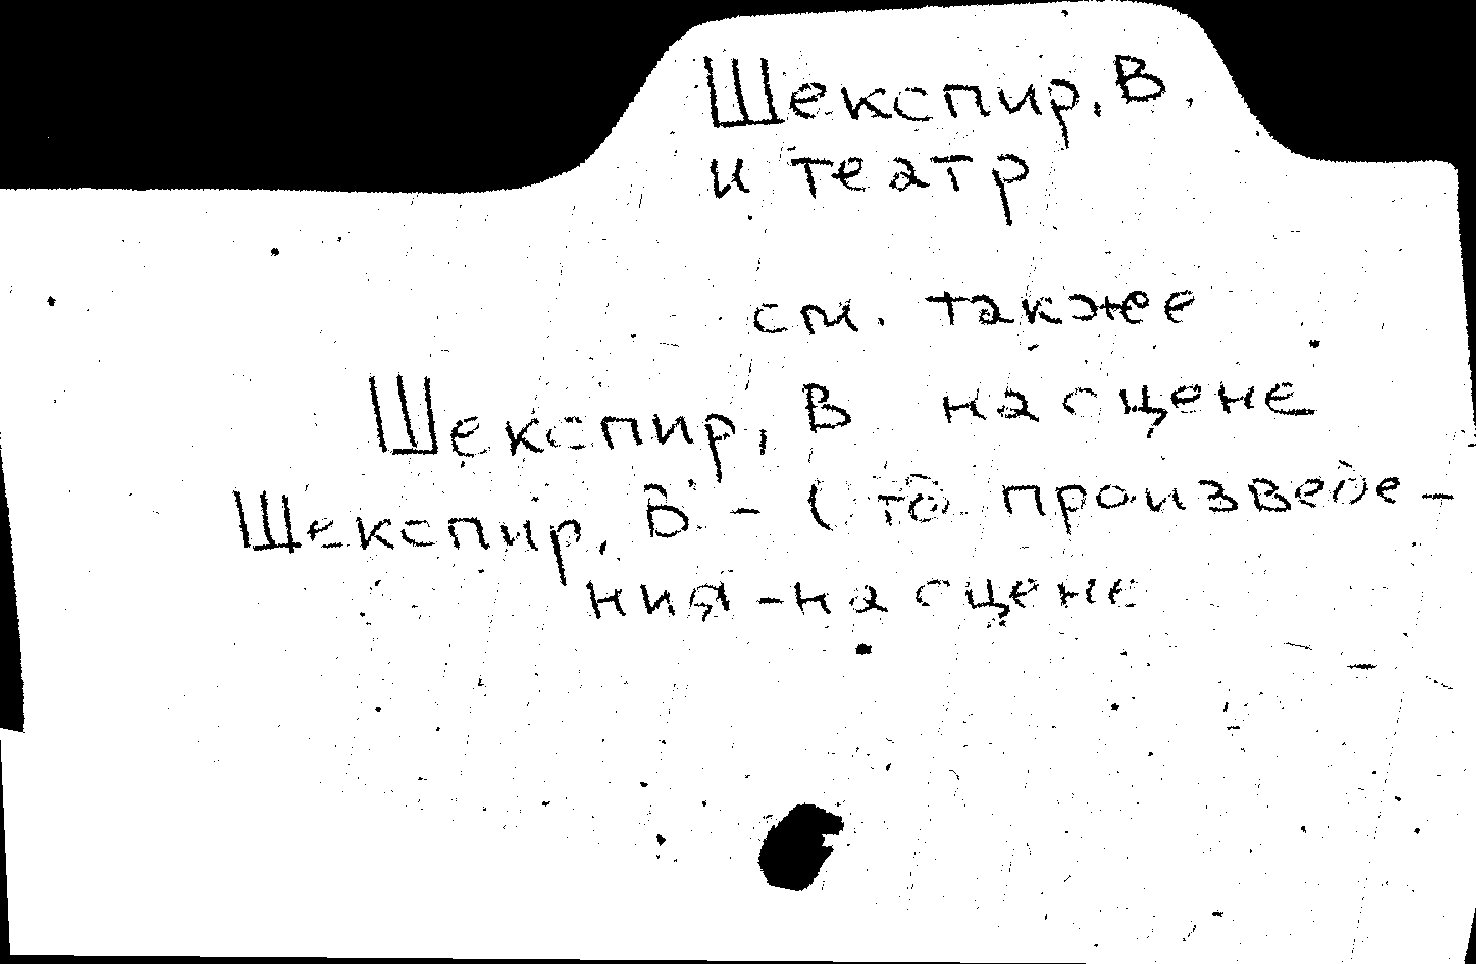 Шекспир, В.
и театр
см. также
Шекспир, В на сцене
Шекспир, В. - произведе-
ния - на сцене